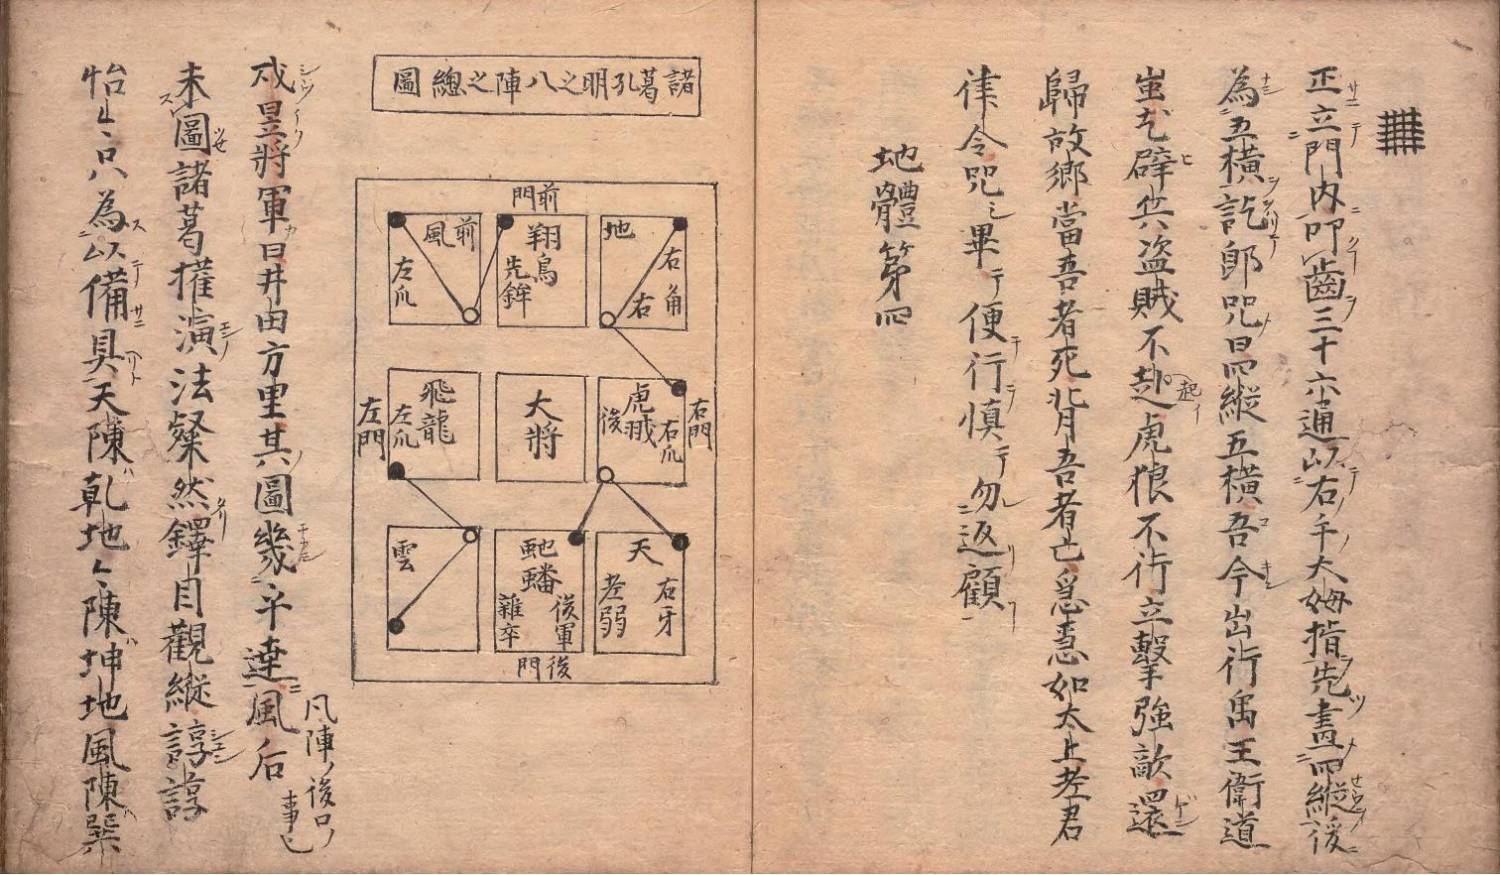 正立門内叩齒三十六通以右手大姆指先畫四縦後
為五横訖即咒曰四縱五横吾今出行禹王衛道
蚩尤辟兵盗賊不起虎狼不行立擊強敵還
歸故郷當吾者死背吾者亡急急如太上老君
律令咒之畢便行慎勿返顧
地體第四
諸葛孔明之八陣之總圖
前門
地 右角 右
翔鳥 先鉾
前風 左爪
右門
虎戝 右爪 後
大将
飛龍 左爪
左門
天 右牙 老弱
虵蟠 後軍 雜卒
雲
後門
凡陣ノ後口ノ事也
将軍曰井田方里其圖幾乎逹風后
未圖諸葛擢演法粲然鐸目觀縦諄諄
怡々只為以備具天陳乾地々陳坤地風陳巽